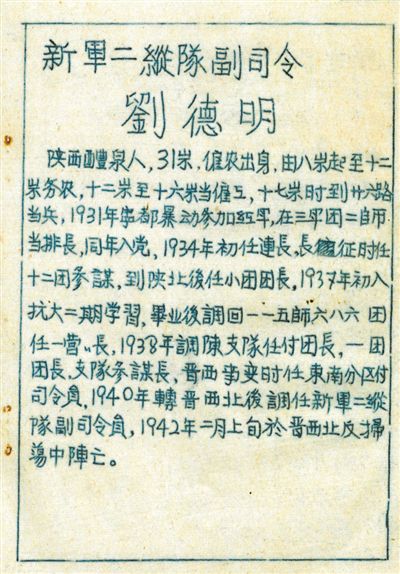 新軍二縱隊副司令
劉德明
陕西醴泉人，31岁，僱农出身，由八岁起至十二
岁务农，十二岁至十六岁当僱工，十七岁时到廿六路
当兵，1931年寧都暴动参加红军，在三军团二自师
当排長，同年入党，1934年初任連長，長征时任
十二团参謀，到陕北後任小团团長，1937年初入
抗大二期学習，畢业後調回一一五師六八六团
任一营长，1938年調陳支隊任付团長，一团
团長，支隊参謀長，晋西事变时任東南分区付
司令員，1940年轉晋西北後調任新軍二縱
隊副司令員，1942年二月上旬於晋西北反掃
蕩中陣亡。